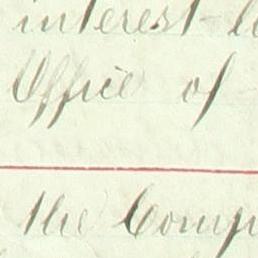 interest
Office of
the Comp